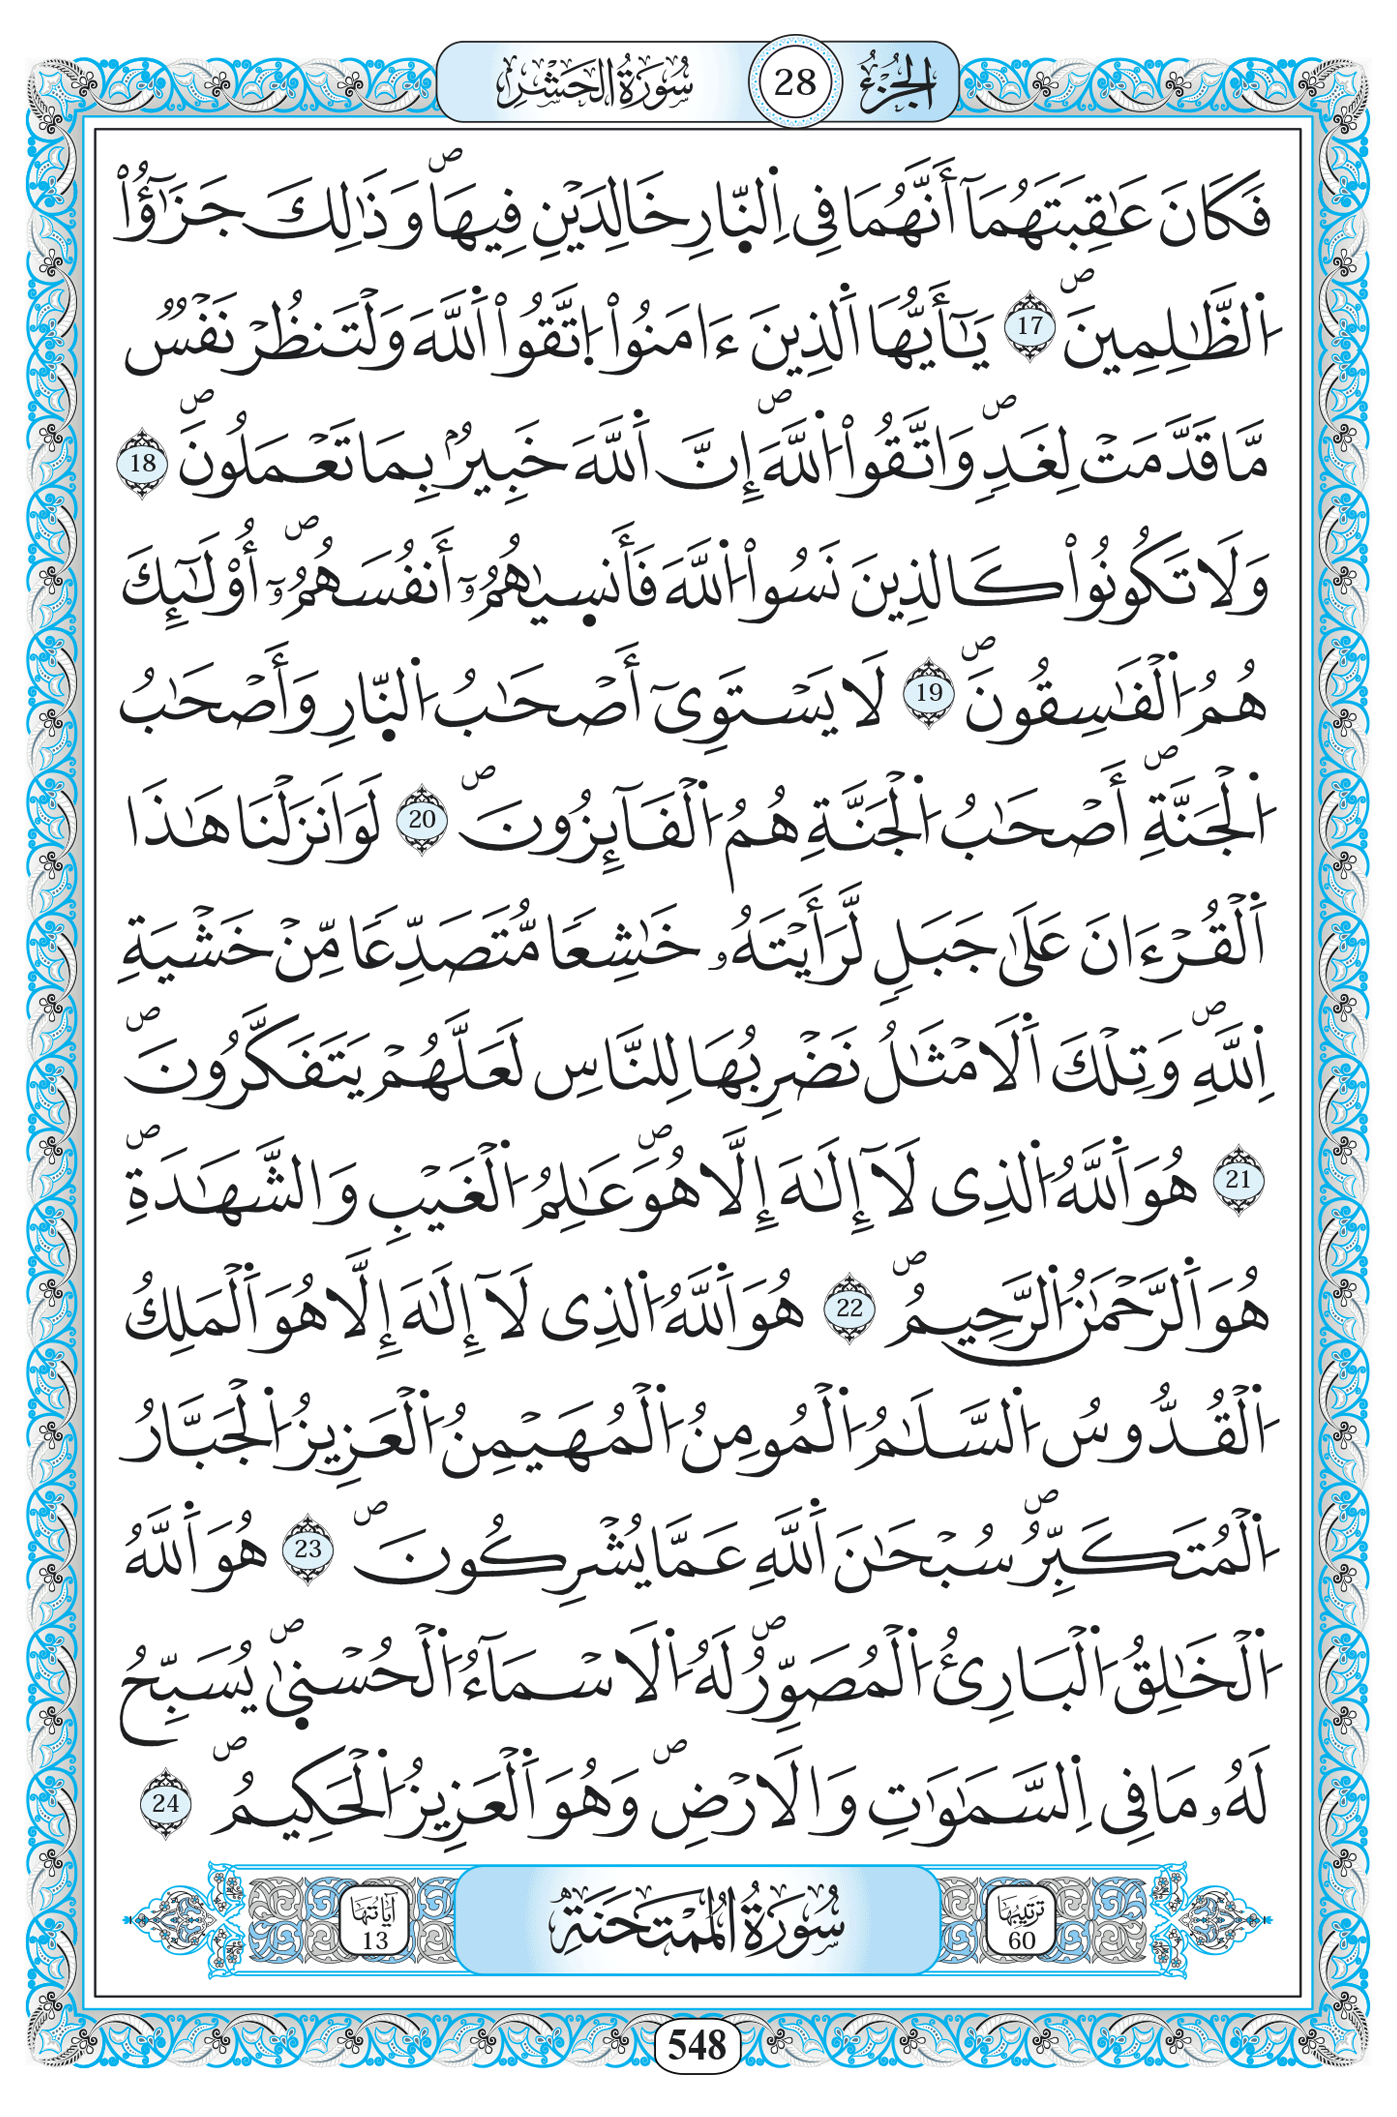 الجزء 28 سورة الحشر
فَكَانَ عَٰقِبَتَهُمَآ أَنَّهُمَا فِي اِ۬لنّ۪ارِ خَٰلِدَيْنِ فِيهَاۖ وَذَٰلِكَ جَزَٰٓؤُاْ
اُ۬لظَّٰلِمِينَۖ 17 يَٰٓأَيُّهَا اَ۬لذِينَ ءَامَنُواْ اُ۪تَّقُواْ اُ۬للَّهَ وَلْتَنظُرْ نَفْسٞ
مَّا قَدَّمَتْ لِغَدٖۖ وَاتَّقُواْ اُ۬للَّهَۖ إِنَّ اَ۬للَّهَ خَبِيرُۢ بِمَا تَعْمَلُونَۖ 18
وَلَا تَكُونُواْ كَالذِينَ نَسُواْ اُ۬للَّهَ فَأَنس۪يٰهُمُۥٓ أَنفُسَهُمُۥٓۖ أُوْلَٰٓئِكَ
هُمُ اُ۬لْفَٰسِقُونَۖ 19 لَا يَسْتَوِےٓ أَصْحَٰبُ اُ۬لنّ۪ارِ وَأَصْحَٰبُ
اُ۬لْجَنَّةِۖ أَصْحَٰبُ اُ۬لْجَنَّةِ هُمُ اُ۬لْفَآئِزُونَۖ 20 لَوَ اَنزَلْنَا هَٰذَا
اَ۬لْقُرْءَانَ عَلَىٰ جَبَلٖ لَّرَأَيْتَهُۥ خَٰشِعاٗ مُّتَصَدِّعاٗ مِّنْ خَشْيَةِ
اِ۬للَّهِۖ وَتِلْكَ اَ۬لَامْثَٰلُ نَضْرِبُهَا لِلنَّاسِ لَعَلَّهُمْ يَتَفَكَّرُونَۖ
21 هُوَ اَ۬للَّهُ اُ۬لذِے لَآ إِلَٰهَ إِلَّا هُوَۖ عَٰلِمُ اُ۬لْغَيْبِ وَالشَّهَٰدَةِۖ
هُوَ اَ۬لرَّحْمَٰنُ اُ۬لرَّحِيمُۖ 22 هُوَ اَ۬للَّهُ اُ۬لذِے لَآ إِلَٰهَ إِلَّا هُوَ اَ۬لْمَلِكُ
اُ۬لْقُدُّوسُ اُ۬لسَّلَٰمُ اُ۬لْمُومِنُ اُ۬لْمُهَيْمِنُ اُ۬لْعَزِيزُ اُ۬لْجَبَّارُ
اُ۬لْمُتَكَبِّرُۖ سُبْحَٰنَ اَ۬للَّهِ عَمَّا يُشْرِكُونَۖ 23 هُوَ اَ۬للَّهُ
اُ۬لْخَٰلِقُ اُ۬لْبَارِئُ اُ۬لْمُصَوِّرُۖ لَهُ اُ۬لَاسْمَآءُ اُ۬لْحُسْن۪يٰۖ يُسَبِّحُ
لَهُۥ مَا فِي اِ۬لسَّمَٰوَٰتِ وَالَارْضِۖ وَهُوَ اَ۬لْعَزِيزُ اُ۬لْحَكِيمُۖ 24
ترتيبها 60 سورة الممتحنة آياتها 13
548